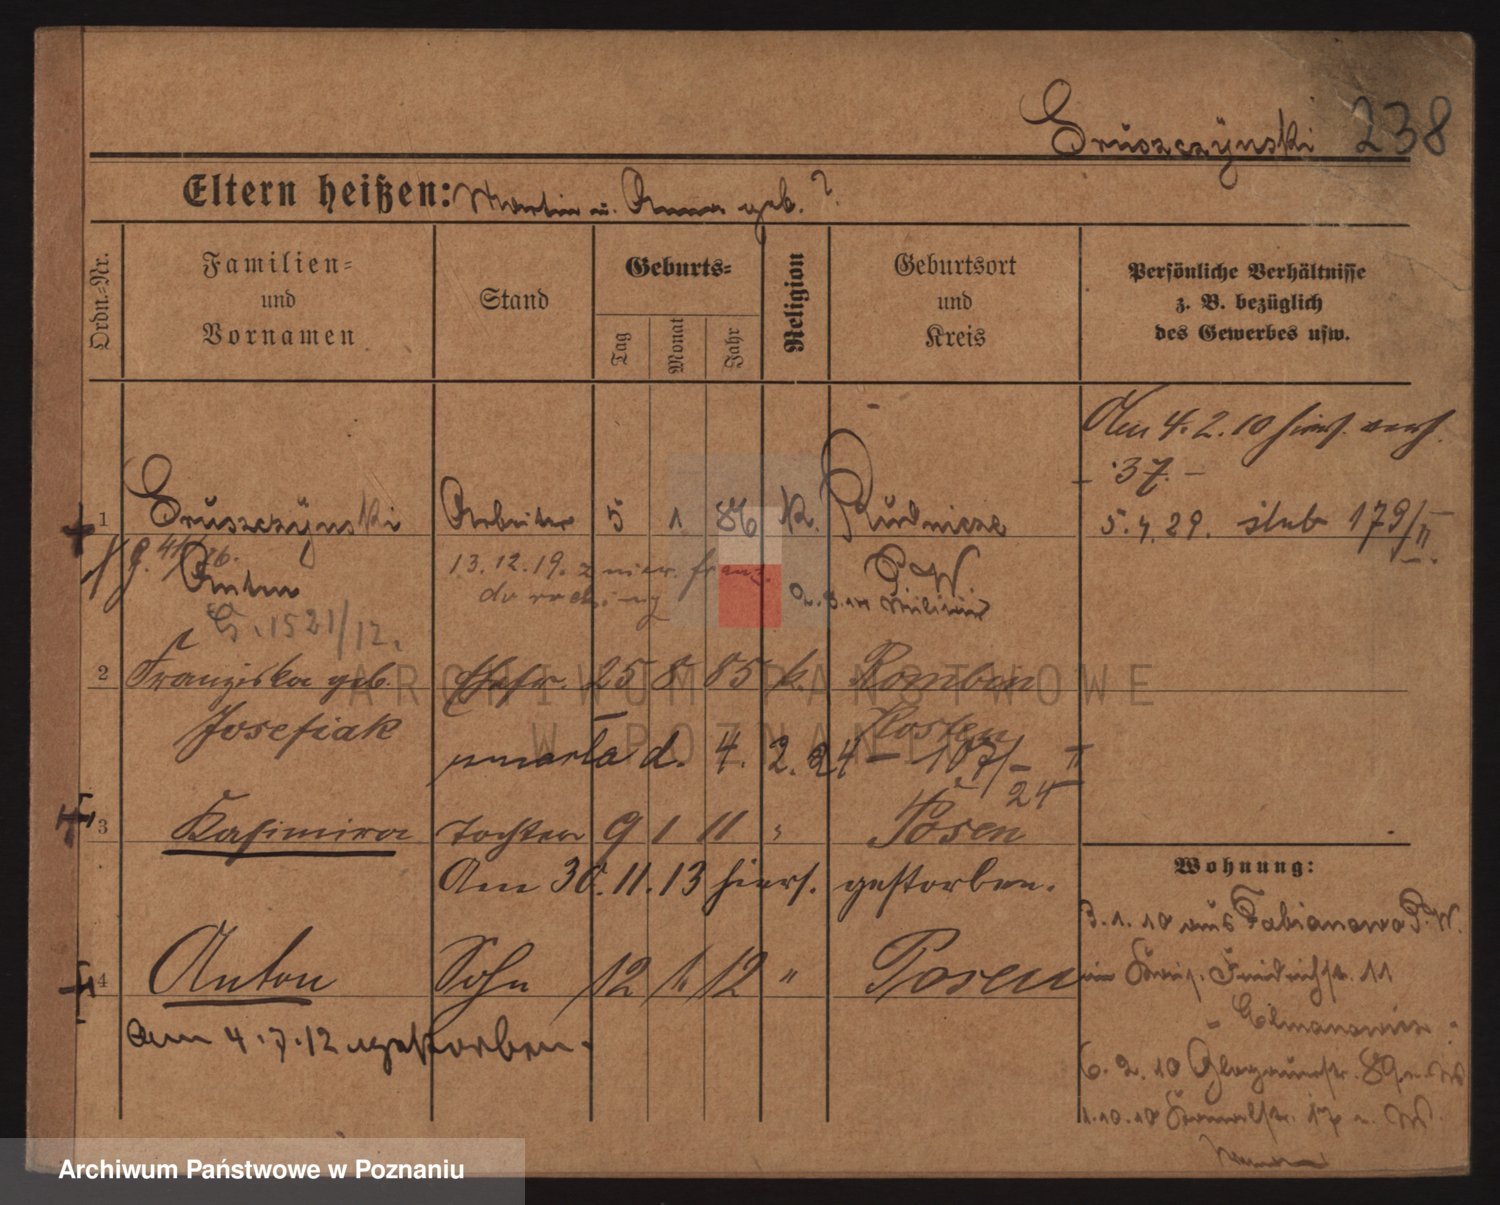 Gruszczynski 238
Eltern heißen: Martin u. Anna geb. ?
Ordn.-Nr.
Familien-
und
Vornamen
Stand
Geburts-
Tag
Monat
Jahr
Religion
Geburtsort
und
Kreis
Persönliche Verhältnisse
z. B. bezüglich
des Gewerbes usw.
Am 4. 2. 10 hiers. verh.
- 37. -
1 Gruszczynski Arbeiter 5 1. 86 K. Rudnicze
5. 4. 29. slub 179/II.
Anton
13. 12. 19. franz.
P. W.
G. 1521/12.
2 Franziska geb. Ehefr. 25 8 85 k. Rombin
Josefiak
Kosten
umarła d. 4. 2. 24 - 107/- II
24
3 Kasimira Tochter 9 1 11 " Posen
Am 30. 11. 13 hiers. gestorben.
4 Anton Sohn 12 1. 12 " Posen
am 4. 7. 12 gestorben.
Wohnung:
3. 1. 10 aus Fabianowo P. W.
Friedrichstr. 11
6. 2. 10 Glogauerstr. 89
1. 10. 10 Kanalstr. 17
ARCHIWUM PAŃSTWOWE
W POZNANIU
Archiwum Państwowe w Poznaniu